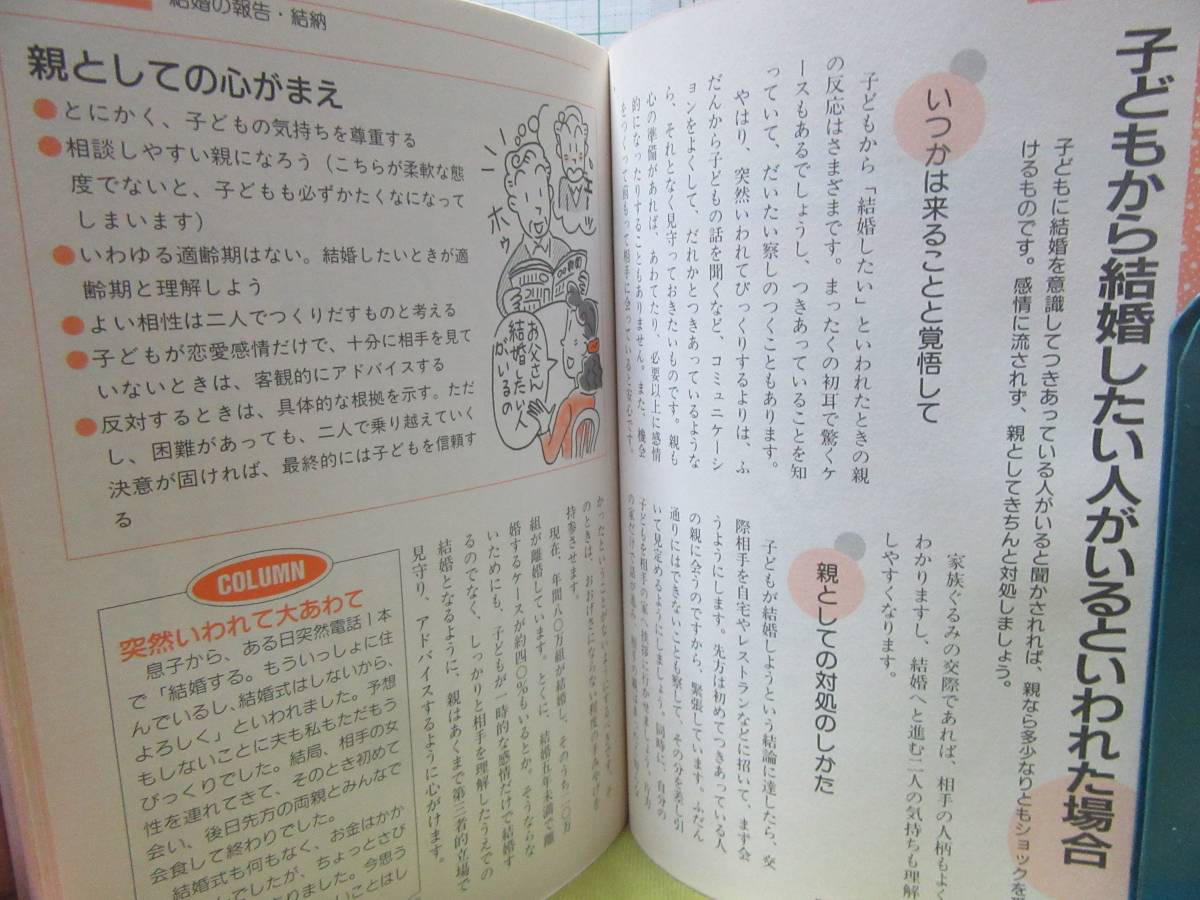 子どもから結婚したい人がいるといわれた場合
子どもに結婚を意識してつきあっている人がいると聞かされれば、親なら多少なりともショックを
けるものです。感情に流されず、親としてきちんと対処しましょう。
いつかは来ることと覚悟して
子どもから「結婚したい」といわれたときの親
の反応はさまざまです。まったくの初耳で驚くケ
ースもあるでしょうし、つきあっていることを知
っていて、だいたい察しのつくこともあります。
やはり、突然いわれてびっくりするよりは、ふ
だんから子どもの話を聞くなど、コミュニケーシ
ョンをよくして、だれかとつきあっているような
ら、それとなく見守っておきたいものです。親も
心の準備があれば、あわてたり、必要以上に感情
的になったりすることもありません。また、機会
をつくって前もって相手に会っていると安心です。
家族ぐるみの交際であれば、相手の人柄もよく
わかりますし、結婚へと進む二人の気持ちも理解
しやすくなります。
親としての対処のしかた
子どもが結婚しようという結論に達したら、交
際相手を自宅やレストランなどに招いて、まず会
うようにします。先方は初めてつきあっている人
の親に会うのですから、緊張しています。ふだん
通りにはできないことも察して、その分を差し引
いて見定めるようにしましょう。同時に、自分の
子どもを相手の家へ挨拶に行かせましょう。
結婚の報告・結納
親としての心がまえ
●とにかく、子どもの気持ちを尊重する
●相談しやすい親になろう（こちらが柔軟な態
度でないと、子どもも必ずかたくなになって
しまいます）
●いわゆる適齢期はない。結婚したいときが適
齢期と理解しよう
●よい相性は二人でつくりだすものと考える
●子どもが恋愛感情だけで、十分に相手を見て
いないときは、客観的にアドバイスする
●反対するときは、具体的な根拠を示す。ただ
し、困難があっても、二人で乗り越えていく
決意が固ければ、最終的には子どもを信頼す
る
ホゥ
新聞
お父さん
結婚したい人
がいるの
のときは、おおげさにならない程度の手みやげを
持参させます。
現在、年間八〇万組が結婚し、そのうち二〇万
組が離婚しています。とくに、結婚五年未満で離
婚するケースが約四〇％もいるとか。そうならな
いためにも、子どもが一時的な感情だけで結婚す
るのでなく、しっかりと相手を理解したうえでの
結婚となるように、親はあくまで第三者的立場で
見守り、アドバイスするように心がけます。
COLUMN
突然いわれて大あわて
息子から、ある日突然電話1本
で「結婚する。もういっしょに住
んでいるし、結婚式はしないから、
よろしく」といわれました。予想
もしないことに夫も私もただもう
びっくりでした。結局、相手の女
性を連れてきて、そのとき初めて
会い、後日先方の両親とみんなで
会食して終わりでした。
結婚式も何もなく、お金はかか
でしたが、ちょっとさび
ました。今思う
いことはし